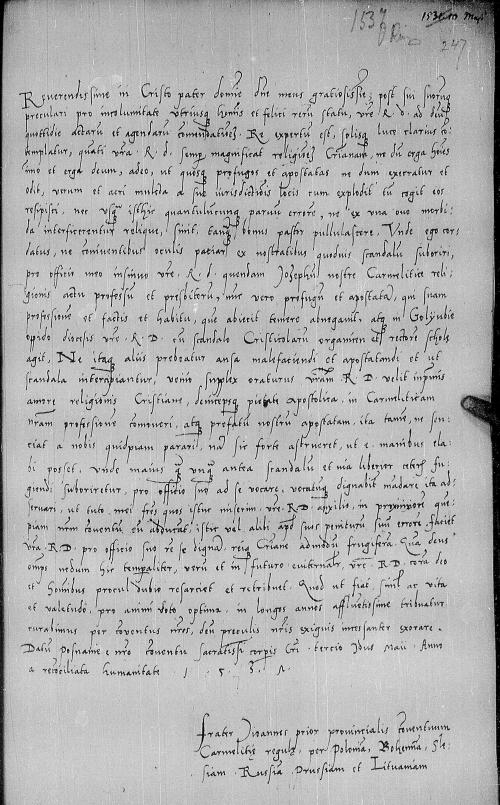 1537
247
Reverendissime in Cristo pater domine dne meus gratiosissime: post sui suorumq
preculari pro incolumitate utriusq hominis et felici rerum statu, vre R. d. ad deum
quottidie actarum et agendarum comendationes. Re expertum est, solisq luce clarius co:
templatur, quanti vra. R. d. semp magnificat religionem Crianam, ne dum erga homines
imo et erga deum, adeo, ut quosq profugos et apostatas ne dum execratur et
odit, verum et acri mulcta a sue iurisdictionis locis cum explodit tum cogit eos
resipisci, nec usq isthic quantulumcunq parvum errore, ne ex una ove morbi:
da interficerentur relique, sinit, tanq bonus pastor pullulascere. Unde ego cor:
datus, ne conniventibus oculis patiar ex nostratibus quovis scandalum suboriri,
pro officio meo insinuo vre. R. d. quendam Josephum nostre Carmelitice reli:
gionis actu professum et presbiterum, nunc vero profugum et apostatam, qui suam
professione et factis et habitu, que abiecit temere abnegavit, atq in Golyubie
opido diocesis vre. R. D. cum scandalo Cristicolarum organicen et rectore schole
agit. Ne itaq aliis prebeatur ansa malefaciendi et apostatandi et ut
scandala intercipiantur, venio supplex oraturus vram R. D. velit inprimis
amore religionis Cristiane, deincepsq pietate Apostolica, in Carmeliticam
nram professione comoveri, atq prefatum nostrum apostatam, ita tame, ne sen:
ciat a nobis quidpiam parari, nam sic forte astrueret, ut e. manibus ela:
bi posset, unde maius q unq antea scandalum et via liberior ceteris fu:
giendi suboriretur, pro officio suo ad se vocare, vocatumq dignabit mandare ita ad:
servari, ut tuto, mei fres quos istuc miserim. vre. R. D. auxilio, in
piam nrm conventum eum abducat, istic vel alibi apud suos peniturum sui errore. faciet
vra. R. D. pro officio suo re se dignam, reiq Criane admodum frugifera. Qua deus
omps nedum hic temporaliter, verum et in futuro eviternaliter, vre. R. D. coram deo
et hominibus procul dubio resarciet et retribuet. Quod ut fiat, simul ac vita
et valetudo, pro animi voto optima, in longos annos affluentissime tribuatur
curabimus per conventus nros, deum preculis nris exiguis incessanter exorare.
Datum Posnanie e nro conventu sacratissimi corporis Cri. tercio Idus Maii. Anno
a reconciliata humanitate. 1. 5. 3. 1.
frater Joannes prior provincialis conventuum
Carmelitice regule, per Polonia, Bohemia, Sle:
siam. Russia. Prussiam et Lituaniam